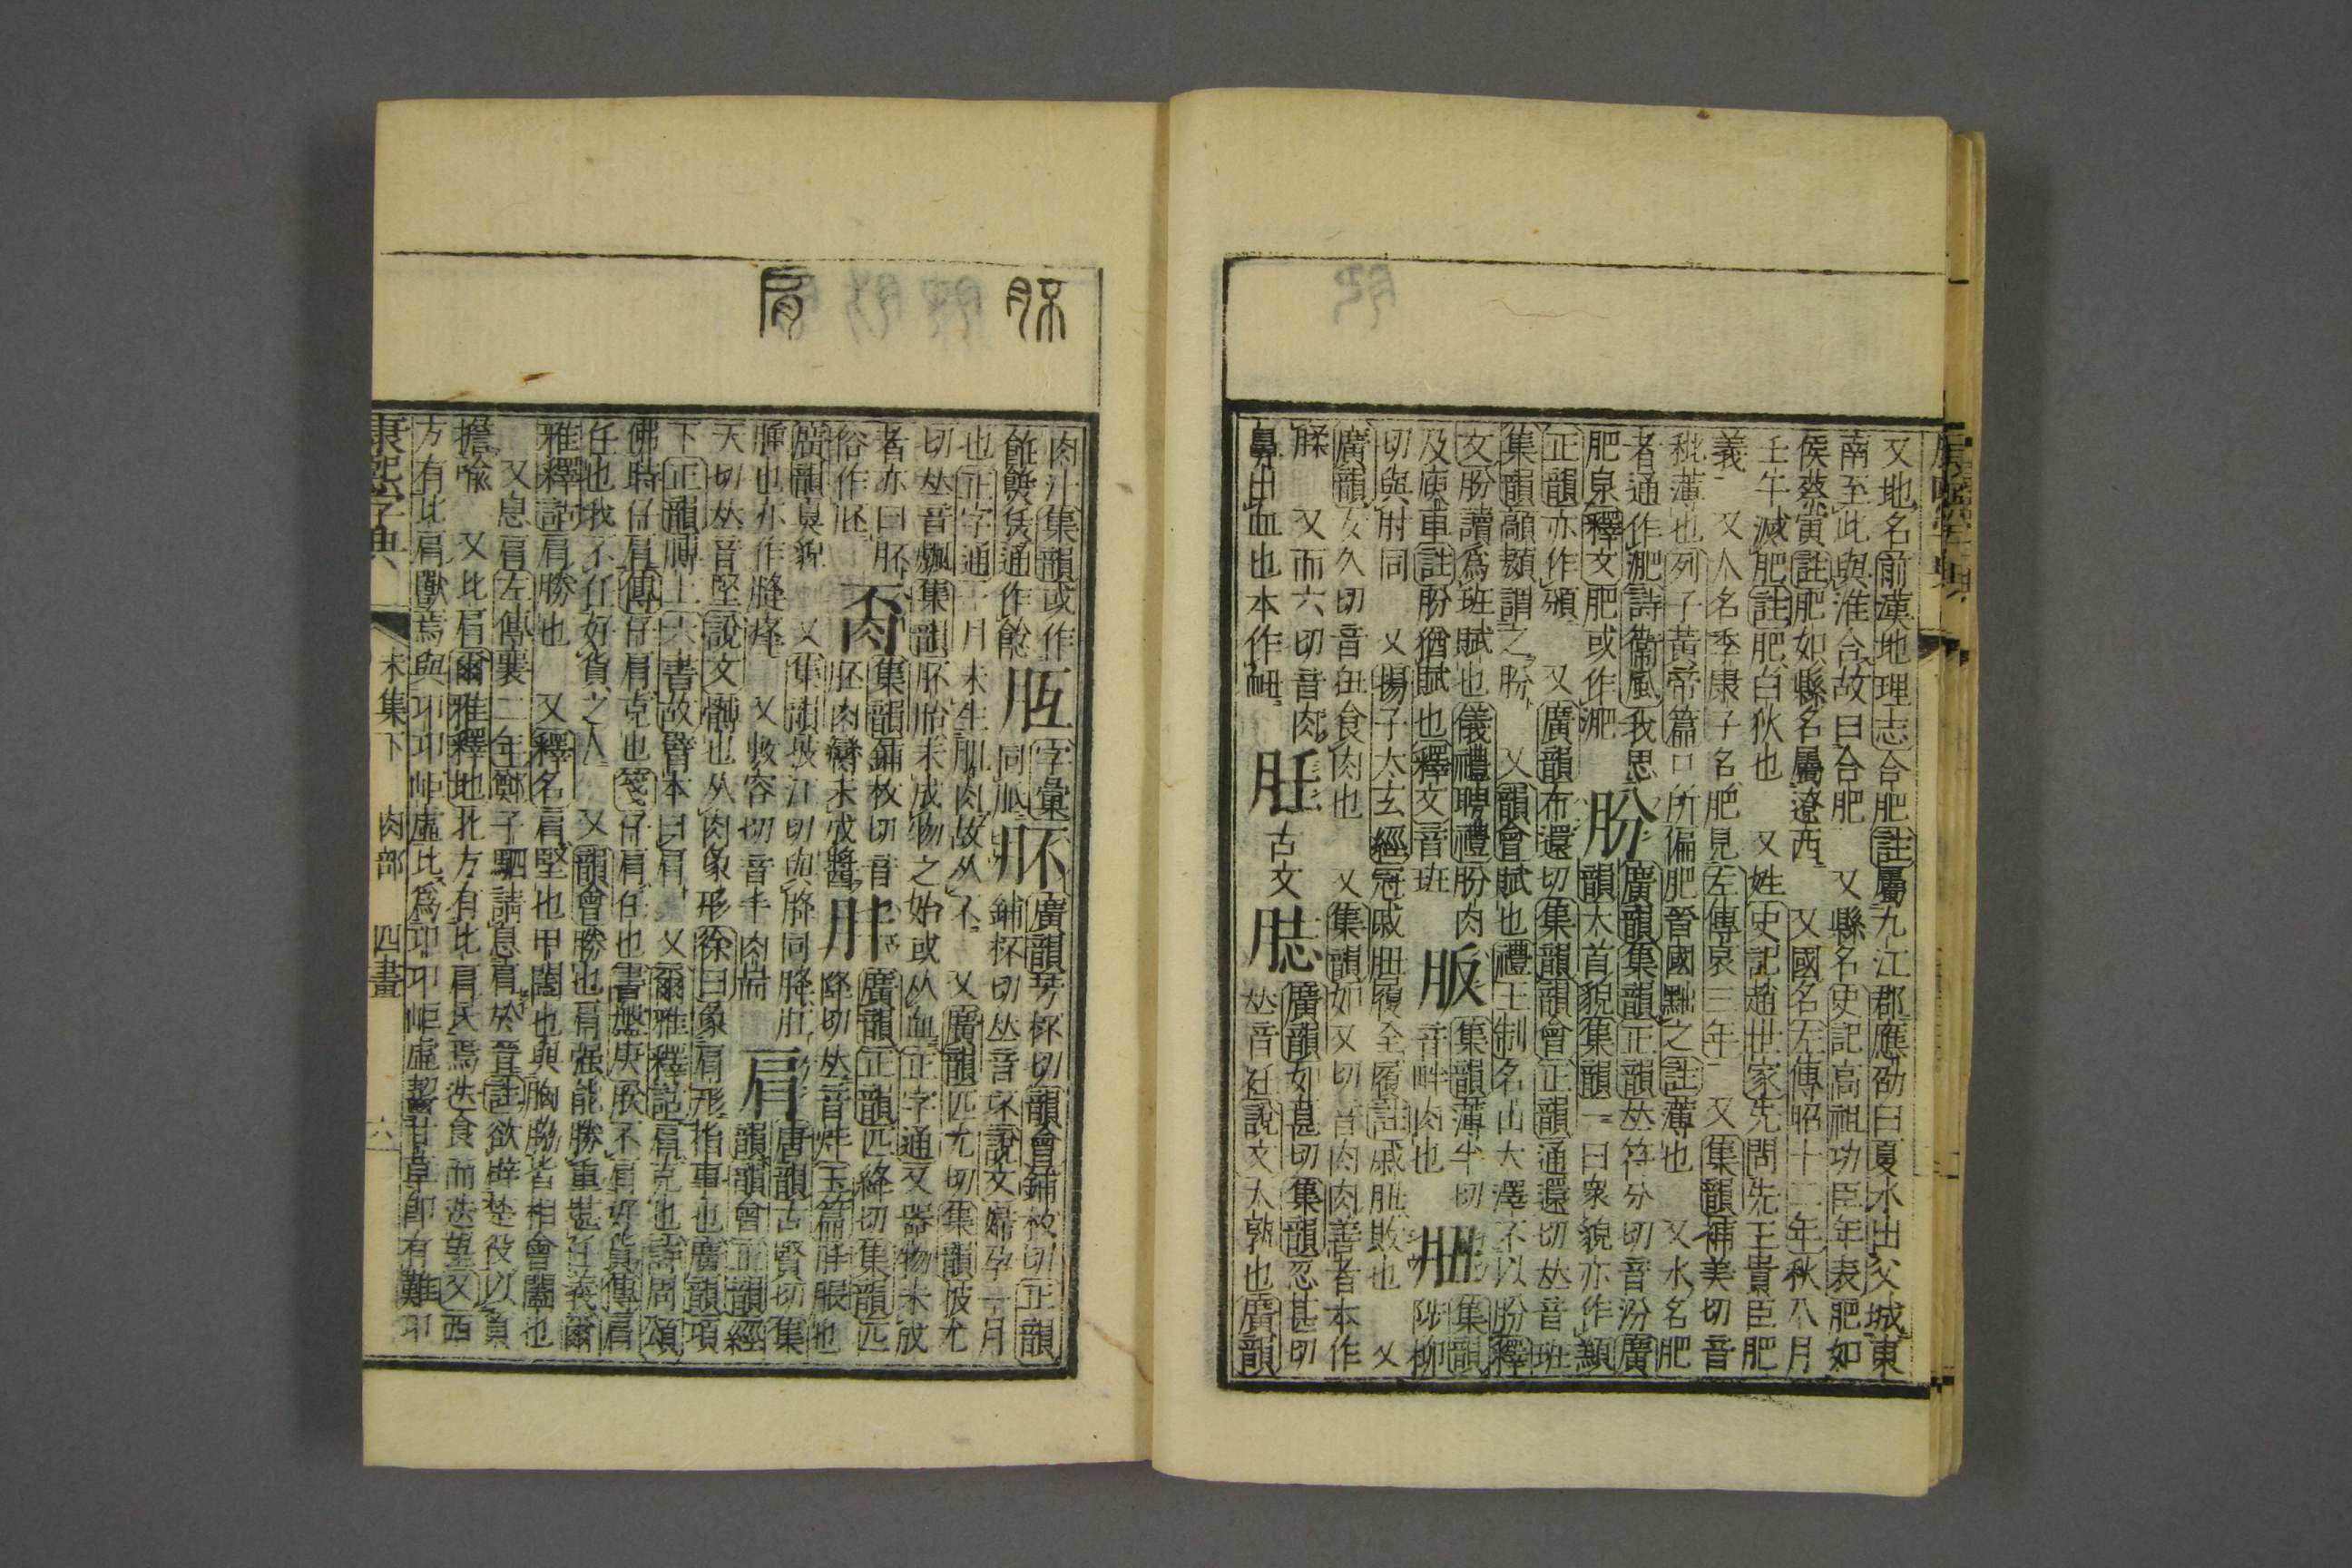 又地名前漢地理志合肥註屬九江郡應劭曰夏水出父城東
南至此與淮合故曰合肥 又縣名史記高祖功臣年表肥如
侯蔡寅註肥如縣名屬遼西 又國名左傳昭十二年秋八月
壬午滅肥註肥白狄也 又姓史記趙世家先問先王貴臣肥
義 又人名季康子名肥見左傳哀三年 又集韻補美切音
秕薄也列子黃帝篇口所偏肥晉國黜之註薄也 又水名肥
者通作淝詩衞風我思
肥泉釋文肥或作淝
肦 廣韻集韻正韻𠀤符分切音汾廣
韻大首貌集韻一曰衆貌亦作
正韻亦作頒 又廣韻布還切集韻韻會正韻通還切𠀤音班
集韻謂之肦 又韻會賦也禮王制名山大澤不以肦釋
文肦讀爲班賦也儀禮聘禮肦肉
及廋車註肦猶賦也釋文音班
䏒 集韻薄半切
音畔肉也
䏔 集韻陟柳
切與肘同 又揚子太玄經冠戚䏔履全履註戚䏔敗也 又
廣韻女久切音狃食肉也 又集韻如又切音肉肉善者本作
腬 又而六切音肉
鼻出血也本作衄
䏕 古文
廣韻如甚切集韻忍甚切
𠀤音荏說文大熟也廣韻
康熙字典
肉汁集韻或作
通作餁
字彙同
肧 廣韻芳杯切韻會鋪枚切正韻
鋪杯切𠀤音坏說文婦孕一月
也正字通一月未生肌肉故从不 又廣韻匹尤切集韻披尤
切𠀤音集韻肧胎未成物之始或从血正字通又器物未成
者亦曰肧
俗作胚
集韻鋪枚切音
胚肉醬未成醬
肨 廣韻正韻匹絳切集韻匹
降切𠀤音玉篇肨脹也
廣韻臭貌 又集韻披江切與胮同胮肛
脾也亦作膖 又敷容切音丰肉耑
肩 唐韻古賢切集
韻韻會正韻經
天切𠀤音堅說文髆也从肉象形徐曰象肩形指事也廣韻項
下正韻髆上六書故臂本曰肩 又爾雅釋詁肩克也詩周頌
佛時仔肩傳仔肩克也箋仔肩任也書盤庚朕不肩好貨傳肩
任也我不任好貨之人 又韻會勝也肩强能勝重堪任義爾
雅釋詁肩勝也 又釋名肩堅也甲闔也與胸脅皆相會闔也
又息肩左傳襄二年鄭子駟請息肩於晉註欲辟楚役以負
擔喩 又比肩爾雅釋地北方有比肩民焉迭食而迭望又西
方有比肩獸焉與邛邛岠虛比爲邛邛岠虛齧甘草卽有難邛
康熙字典 未集下 肉部 四畫 六